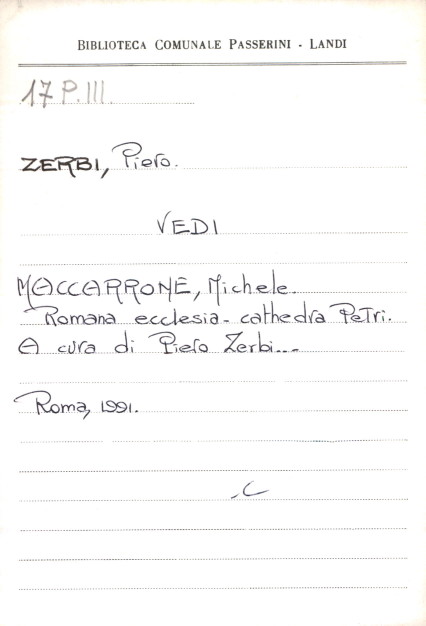 BIBLIOTECA COMUNALE PASSERINI - LANDI
17 P.III.
ZERBI, Piero.
VEDI
MACCARRONE, Michele.
Romana ecclesia - cathedra Petri.
A cura di Piero Zerbi...
Roma, 1991.